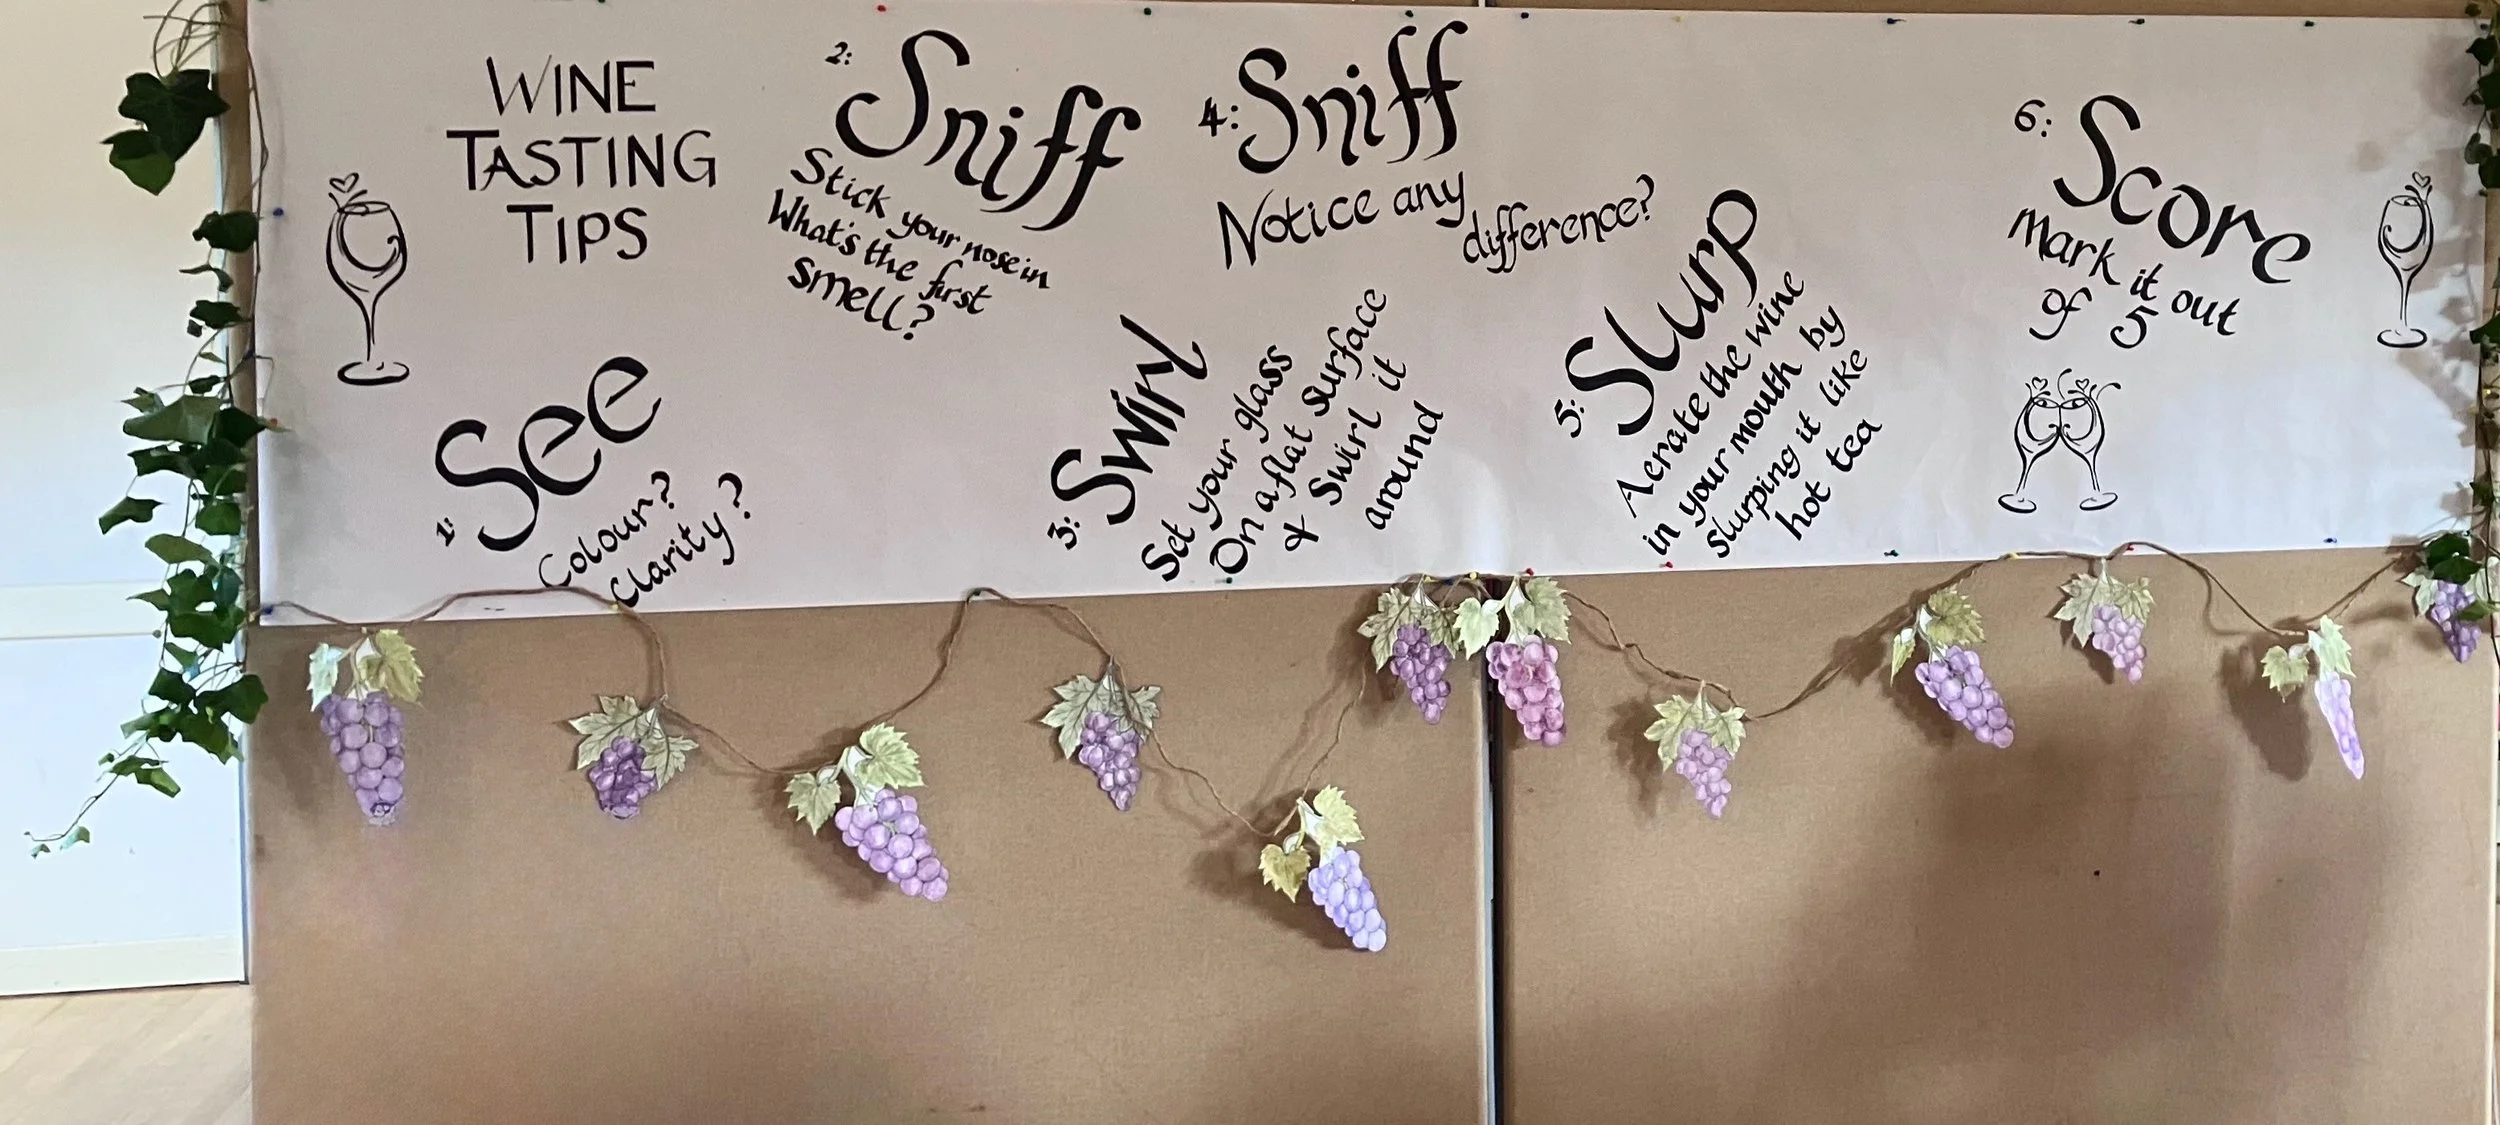 WINE
TASTING
TIPS
1: See
Colour?
Clarity?
2: Sniff
Stick your nose in
What's the first
smell?
3: Swirl
Set your glass
On a flat surface
& Swirl it
around
4: Sniff
Notice any
difference?
5: Slurp
Aerate the wine
in your mouth by
slurping it like
hot tea
6: Score
Mark it out
of 5